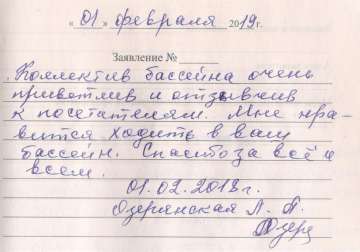 « 01 » февраля 2019г.
Заявление №
Коллектив бассейна очень
приветлив и отзывчив
к посетителям. Мне нра-
вится ходить в ваш
бассейн. Спасибо за всё и
всем.
01.02.2018г.
Озерянская Л. П.
Озер